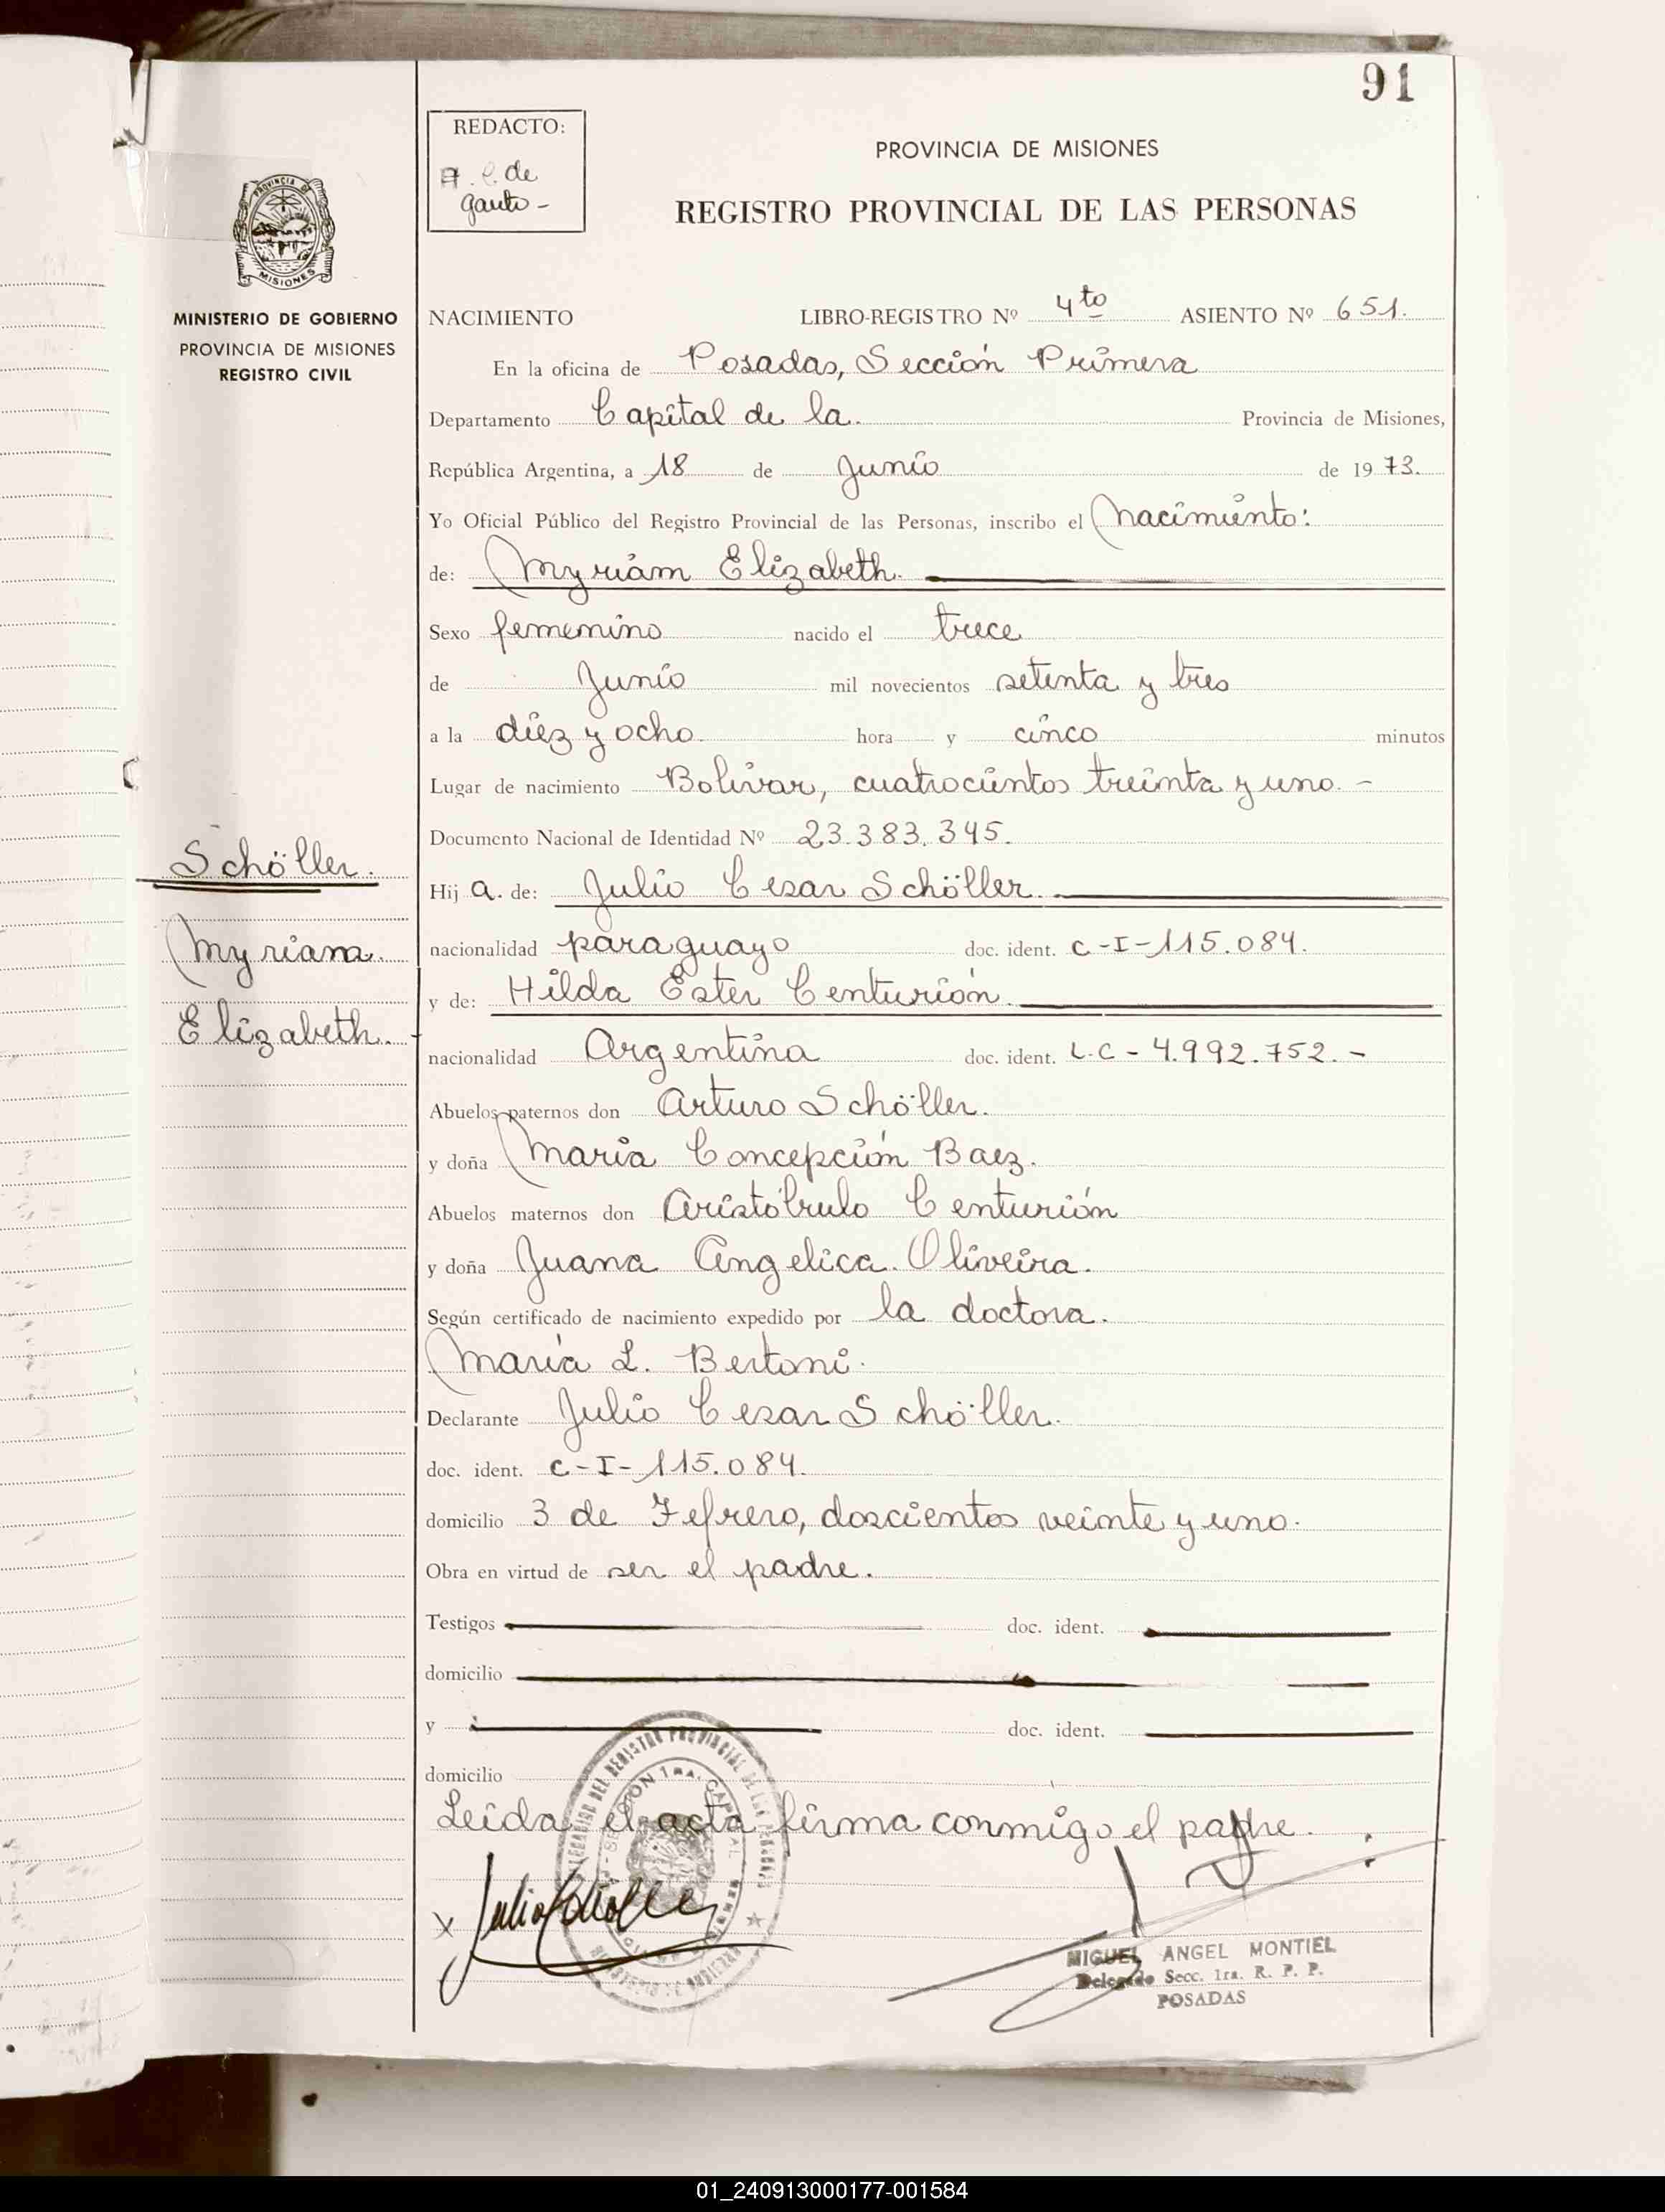 91
REDACTO:
de
gauto -
PROVINCIA DE MISIONES
REGISTRO PROVINCIAL DE LAS PERSONAS
PROVINCIA DE
MISIONES
MINISTERIO DE GOBIERNO
PROVINCIA DE MISIONES
REGISTRO CIVIL
NACIMIENTO LIBRO-REGISTRO Nº 4to ASIENTO Nº 651.
En la oficina de Posadas, Sección Primera
Departamento Capital de la. Provincia de Misiones,
República Argentina, a 18 de Junio de 19 73.
Yo Oficial Público del Registro Provincial de las Personas, inscribo el Nacimiento:
de: Myriam Elizabeth.
Sexo femenino nacido el trece
de Junio mil novecientos setenta y tres
a la diez y ocho. hora y cinco minutos
Lugar de nacimiento Bolivar, cuatrocientos treinta y uno. -
Documento Nacional de Identidad Nº 23.383.345.
Schöller.
Myriam.
Elizabeth.
Hij a. de: Julio Cesar Schöller.
nacionalidad paraguayo doc. ident. C-I-115.084.
y de: Hilda Ester Centurión.
nacionalidad Argentina doc. ident. L.C - 4.992.752. -
Abuelos paternos don Arturo Schöller.
y doña María Concepción Baez.
Abuelos maternos don Aristóbulo Centurión
y doña Juana Angelica Oliveira.
Según certificado de nacimiento expedido por la doctora.
María L. Bertoni.
Declarante Julio Cesar Schöller.
doc. ident. C-I-115.084.
domicilio 3 de Febrero, doscientos veinte y uno.
Obra en virtud de ser el padre.
Testigos doc. ident.
domicilio
y doc. ident.
domicilio
Leida el acta firma conmigo el padre.
X
MIGUEL ANGEL MONTIEL
Delegado Secc. 1ra. R. P. P.
POSADAS
01_240913000177-001584